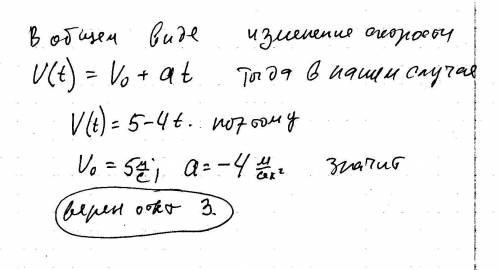 В общем виде изменение скорости
V(t) = V₀ + at тогда в нашем случае
V(t) = 5 - 4t. поэтому
V₀ = 5 м/с; a = -4 м/сек² значит
верен ответ 3.